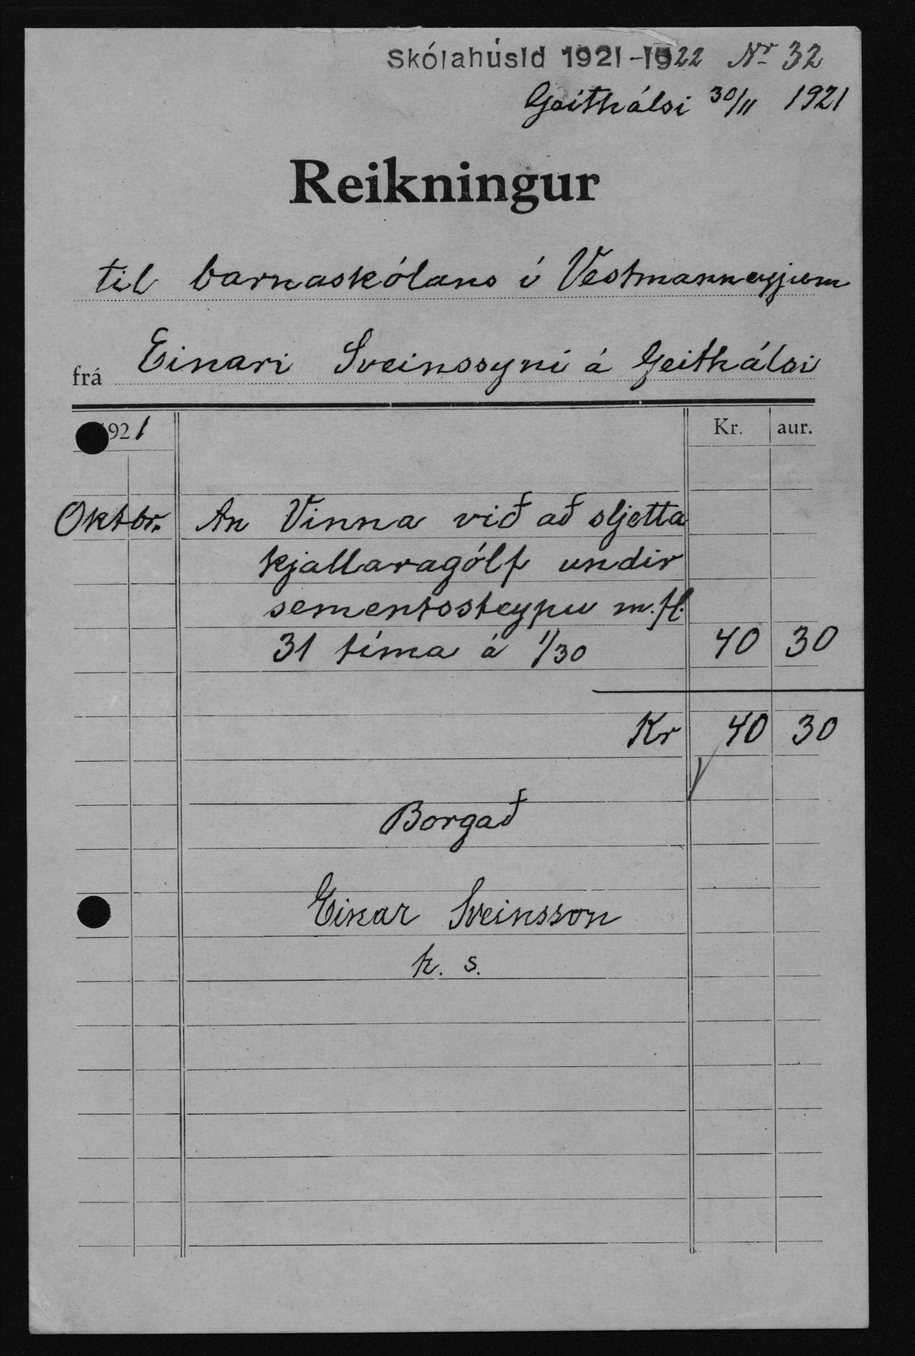 Skólahúsið 1921-1922 Nr 32
Geithálsi 30/11 1921
Reikningur
til barnaskólans í Vestmannaeyjum
frá Einari Sveinssyni á Geithálsi
1921 Kr. aur.
Oktbr. An Vinna við að sljetta
kjallaragólf undir
sementssteypu m.fl.
31 tíma á 1/30 40 30
Kr 40 30
Borgað
Einar Sveinsson
h. s.